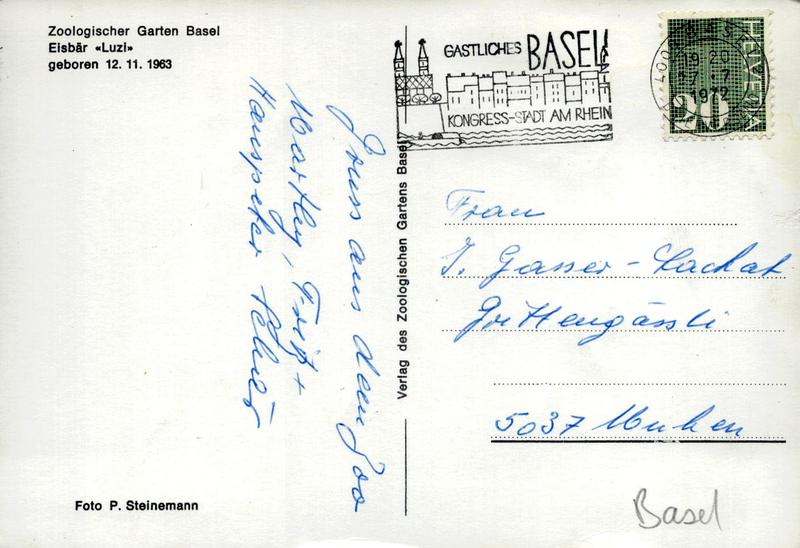 Zoologischer Garten Basel
Eisbär «Luzi»
geboren 12. 11. 1963
Gruss aus dem Zoo
Fritz +
Hanspeter
Foto P. Steinemann
Verlag des Zoologischen Gartens Basel
GASTLICHES BASEL
KONGRESS-STADT AM RHEIN
HELVETIA
20
1972
Frau
J. Gasser-Lachat
Grittengässli
5037 Muhen
Basel